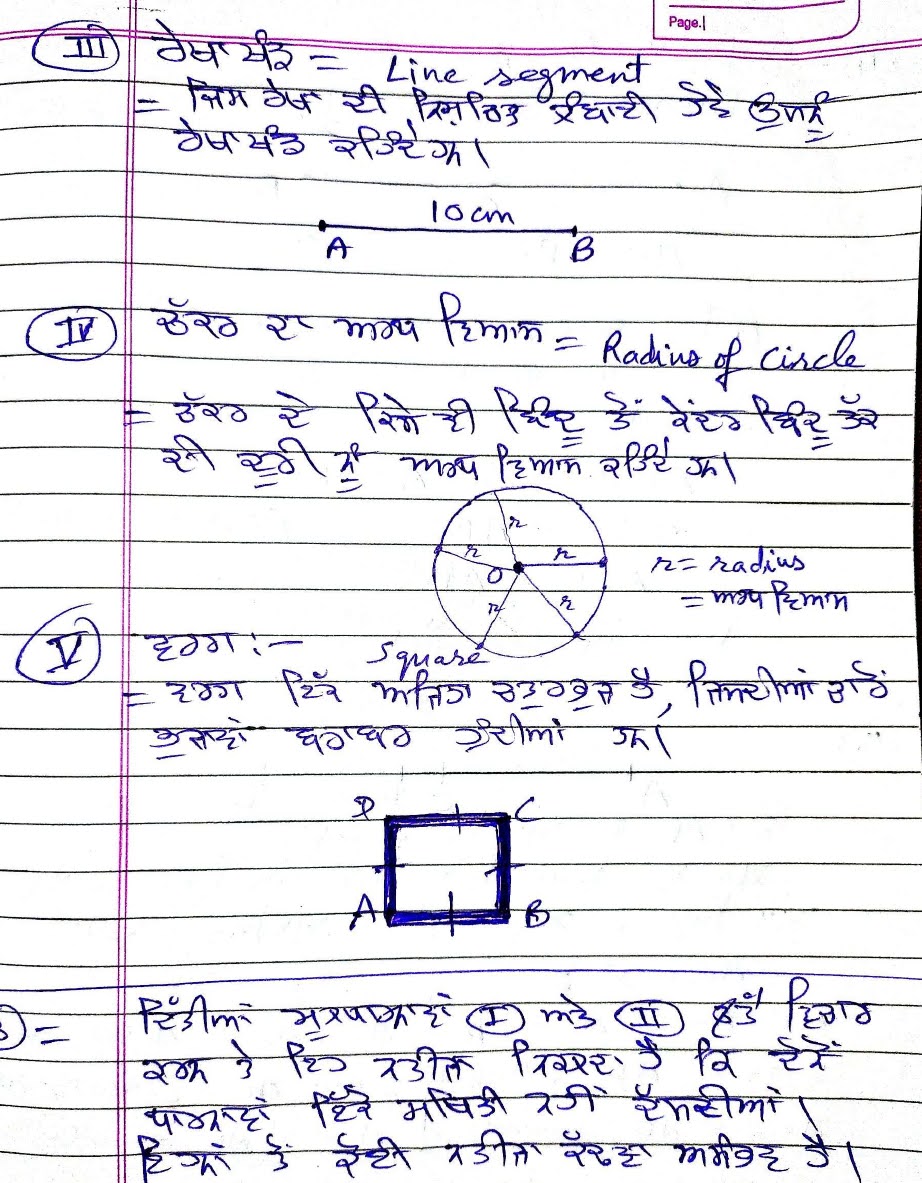 Page.
III ਰੇਖਾ ਖੰਡ = Line segment
= ਜਿਸ ਰੇਖਾ ਦੀ ਨਿਸ਼ਚਿਤ ਲੰਬਾਈ ਹੋਵੇ ਉਸਨੂੰ
ਰੇਖਾ ਖੰਡ ਕਹਿੰਦੇ ਹਨ।
10 cm
A B
IV ਚੱਕਰ ਦਾ ਅਰਧ ਵਿਆਸ = Radius of Circle
= ਚੱਕਰ ਦੇ ਕਿਸੇ ਵੀ ਬਿੰਦੂ ਤੋਂ ਕੇਂਦਰ ਬਿੰਦੂ ਤੱਕ
ਦੀ ਦੂਰੀ ਨੂੰ ਅਰਧ ਵਿਆਸ ਕਹਿੰਦੇ ਹਨ।
r
r r
O
r r
r = radius
= ਅਰਧ ਵਿਆਸ
V ਵਰਗ :- Square
= ਵਰਗ ਇੱਕ ਅਜਿਹਾ ਚਤੁਰਭੁਜ ਹੈ, ਜਿਸਦੀਆਂ ਚਾਰੋਂ
ਭੁਜਾਵਾਂ ਬਰਾਬਰ ਹੁੰਦੀਆਂ ਹਨ।
D C
A B
) = ਦਿੱਤੀਆਂ ਮੂਲਧਾਰਨਾਵਾਂ I ਅਤੇ II ਉੱਤੇ ਵਿਚਾਰ
ਕਰਨ ਤੇ ਇਹ ਨਤੀਜਾ ਨਿਕਲਦਾ ਹੈ ਕਿ ਦੋਨੋਂ
ਧਾਰਨਾਵਾਂ ਵਿੱਚ ਸਥਿਤੀ ਨਹੀਂ ਦੱਸਦੀਆਂ।
ਇਹਨਾਂ ਤੋਂ ਕੋਈ ਨਤੀਜਾ ਕੱਢਣਾ ਅਸੰਭਵ ਹੈ।